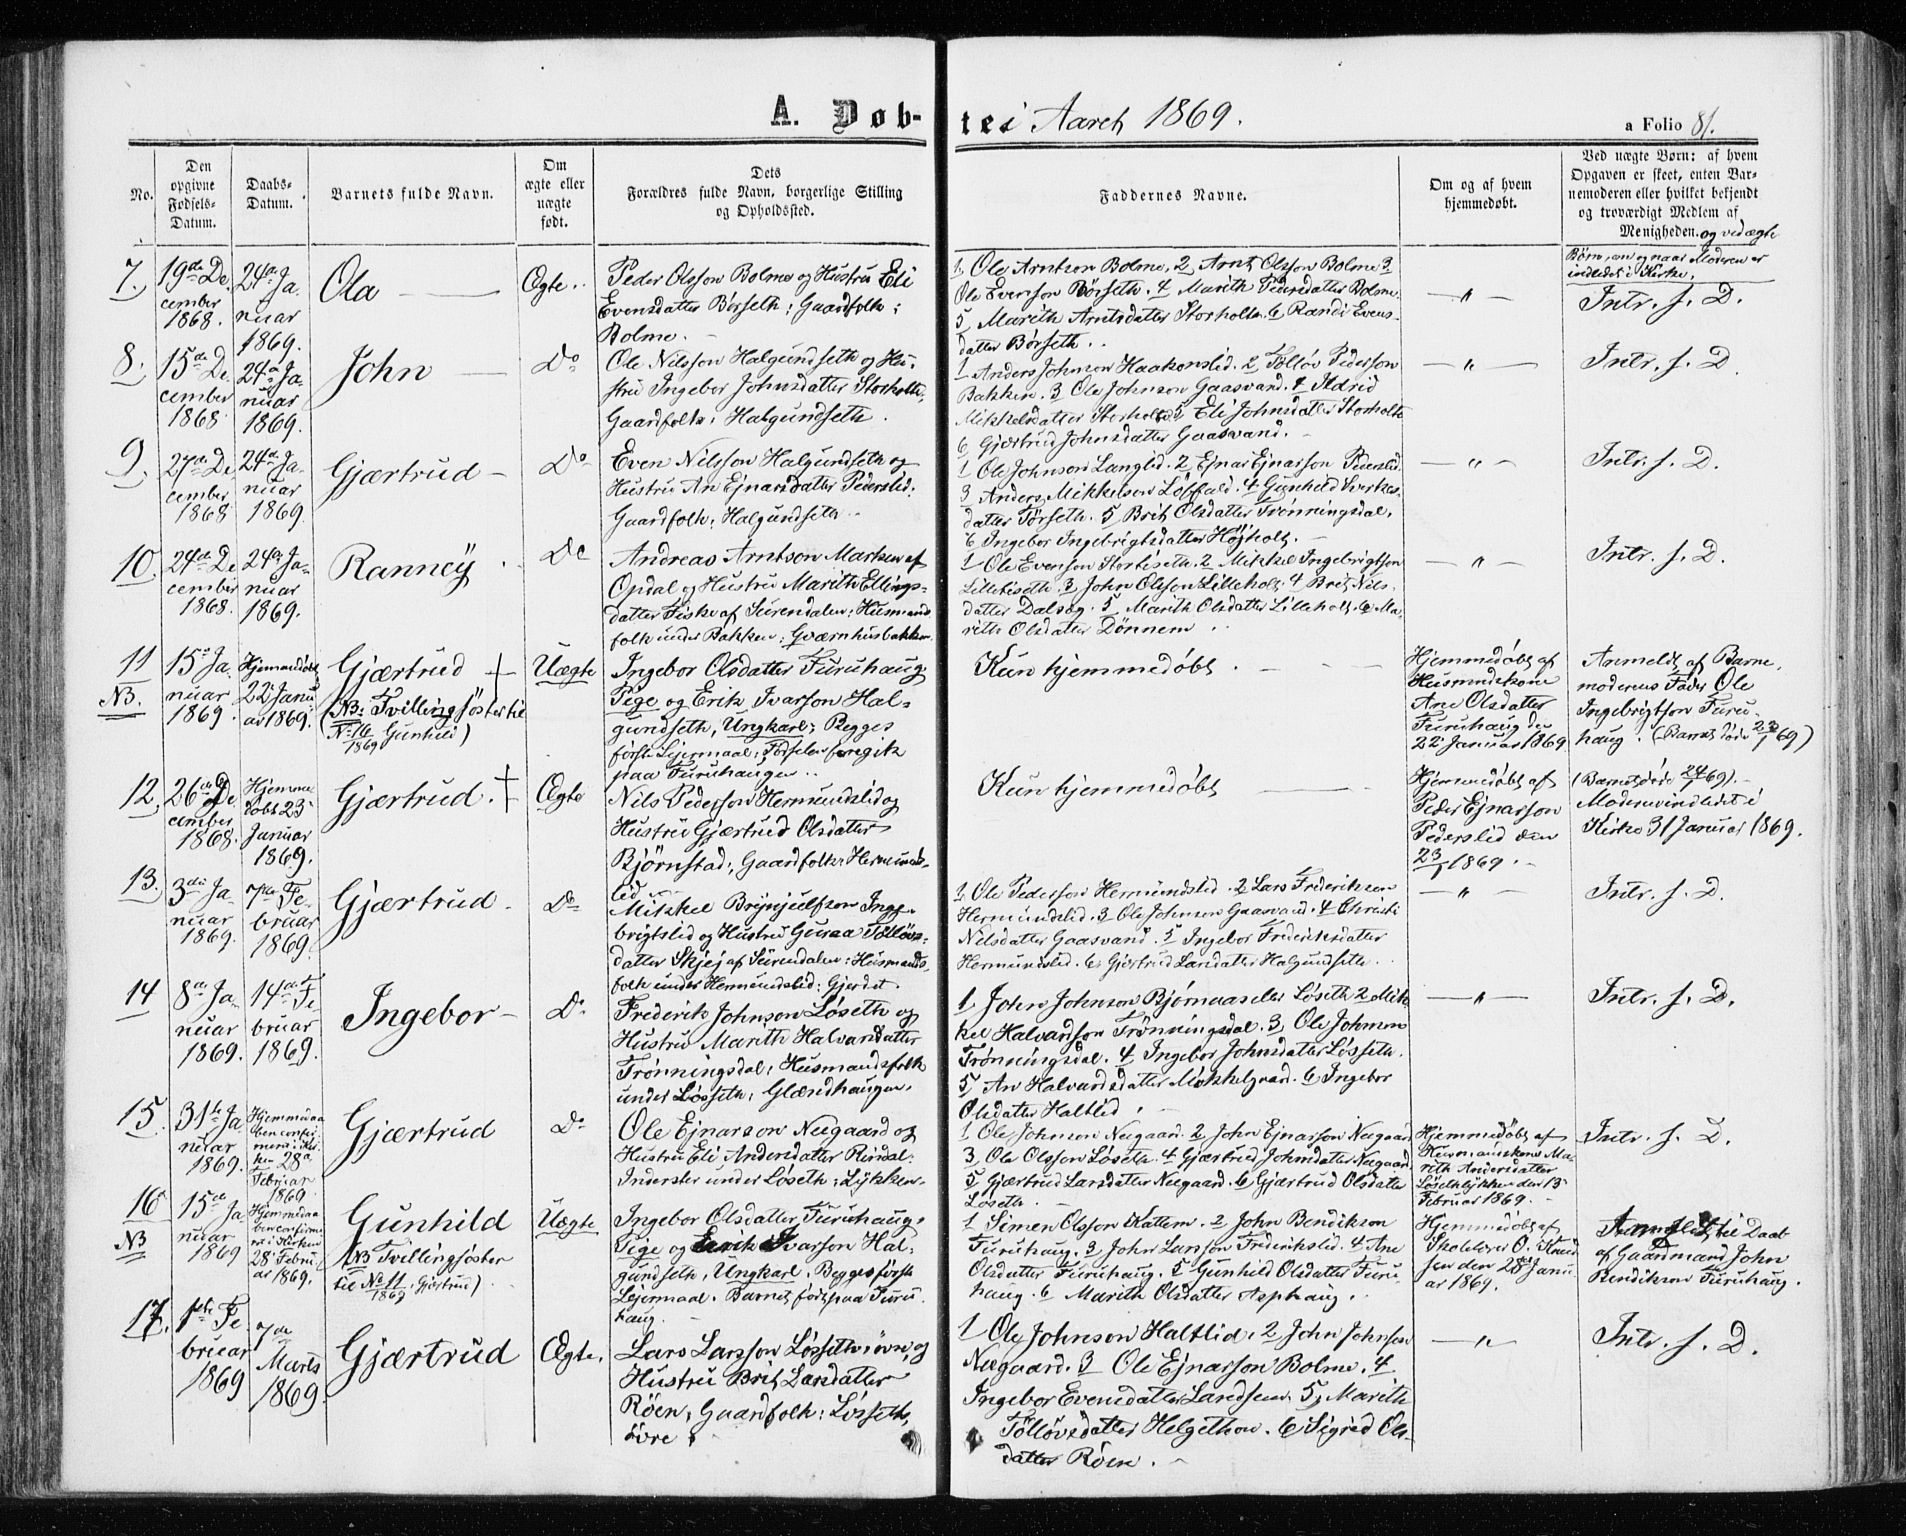 A. Døb-
tes i Aaret 1869.
a Folio 81.
No.
Den
opgivne
Fødsels-
Datum.
Daabs-
Datum.
Barnets fulde Navn.
Om
ægte eller
uægte
født.
Dets
Forældres fulde Navn, borgerlige Stilling
og Opholdssted.
Faddernes Navne.
Om og af hvem
hjemmedøbt.
Ved uægte Børn: af hvem
Opgaven er skeet, enten Bar-
nemoderen eller hvilket bekjendt
og troværdigt Medlem af
Menigheden. og ved ægte
Børn, om og naar Moderen er
indledet i Kirke.
7.
19de De
cember
1868.
24de Ja
nuar
1869.
Ola
Ægte
Peder Olsson Bolme og Hustru Eli
Evensdatter Børseth; Gaardfolk;
Bolme.
1, Ole Arntson Bolme, 2, Arnt Olsson Bolme 3
Ole Evenson Børseth. 4 Marith Pedersdatter Bolme.
5, Marith Arntsdatter Storholt. 6 Randi Evens-
datter Børseth.
— " —
Intr. f. D.
8.
15de De
cember
1868.
24de Ja
nuar
1869.
John
Do
Ole Nilsson Halgundseth og Hu-
stru Ingebor Johnsdatter Storholt;
Gaardfolk; Halgundseth.
1 Anders Johnson Haakonslid. 2 Tølløv Pederson
Bakken. 3 Ole Johnson Gaasvand. 4 Ildrid
Mikkelsdatter Storholt. 5 Eli Johnsdatter Storholt
6 Gjærtrud Johnsdatter Gaasvand.
— " —
Intr. f. D.
9.
27de De
cember
1868
24de Ja
nuar
1869.
Gjærtrud
Do
Even Nilsson Halgundseth og
Hustru An Ejnarsdatter Pederslid;
Gaardfolk; Halgundseth.
1 Ole Johnson Langlid. 2 Ejnar Ejnarson Pederslid.
3 Anders Mikkelson Løffald. 4 Gunhild Sivertses-
datter Tørseth. 5 Brit Olsdatter Trønningsdal,
6 Ingebor Ingebrigtsdatter Højholt.
— " —
Intr. f. D.
10.
24de De
cember
1868.
24de Ja
nuar
1869.
Ranney
Do
Andreas Arntson Marken af
Opdal og Hustru Marith Ellings-
datter Fiske af Surendalen; Husmands
folk under Bakken; Qværnhusbakken.
1 Ole Evenson Storbiseth. 2 Mikkel Ingebrigtson
Lillebiseth. 3 John Olsson Lilleholt. 4 Brit Nils-
datter Dalsøg. 5 Marith Olsdatter Lilleholt. 6 Ma-
rith Olsdatter Dønnem
— " —
Intr. f. D.
11
NB.
15de Ja
nuar
1869.
Hjemmedøbt
22de Janu
ar 1869.
Gjærtrud †
(NB: Tvillingsøster til
No 16 Gunhild)
1869
Uægte
Ingebor Olsdatter Furuhaug
Pige og Erik Ivarson Hal-
gundseth, Ungkarl; Begges
første Lejermaal; Fødselen foregik
paa Furuhaugen.
Kun hjemmedøbt.
Hjemmedøbt af
Husmndskone
Ane Olsdatter
Furuhaug den
22de Januar 1869
Anmeldt af Barne-
moderens Fader Ole
Ingebrigtson Furu-
haug. (Barnet døde 23/1 69)
12.
26de De
cember
1868.
Hjemme
døbt 23de
Januar
1869.
Gjærtrud. †
Ægte
Nils Pederson Hermundslid og
Hustru Gjærtrud Olsdatter
Bjørnstad; Gaardfolk; Hermunds-
lid
Kun hjemmedøbt
Hjemmedøbt af
Peder Ejnarson
Pederslid den
23/1 1869.
(Barnet døde 24/1 69).
Moderen indledet i
Kirke 31 Januar 1869.
13.
3die Ja
nuar
1869.
7de Fe-
bruar
1869.
Gjærtrud
Do
Mikkel Brynjulfson Inge-
brigtslid og Hustru Guraa Tølløvs-
datter Skjej af Surendalen; Husmands-
folk under Hermundslid; Gjerdet.
1, Ole Pederson Hermundslid. 2 Lars Frederiksen
Hermundslid. 3 Ole Johnson Gaasvand. 4 Christi
Nilsdatter Gaasvand. 5 Ingebor Frederiksdatter
Hermundslid. 6, Gjertrud Larsdatter Halgundseth.
— " —
Intr. f. D.
14
8de Ja-
nuar
1869.
14de Fe
bruar
1869.
Ingebor
Do
Frederik Johnson Løseth og
Hustru Marith Halvardsdatter
Trønningsdal; Husmandsfolk
under Løsseth; Glændhaugen.
1, John Johnson Bjørnaas eller Løseth 2 Mik
kel Halvardson Trønningsdal. 3, Ole Johnson
Trønningsdal. 4 Ingebor Johnsdatter Løsseth.
5, An Halvardsdatter Mikkelgaard. 6 Ingebor
Olsdatter Haltlid.
— " —
Intr. f. D.
15.
31te Ja-
nuar
1869.
Hjemmedaa
ben confir
meret i Kir-
ken 28de
Februar
1869
Gjærtrud
Do
Ole Ejnarson Nergaard og
Hustru Eli Andersdatter Rindal;
Inderster under Løseth; Lykken.
1 Ole Johnson Neegaard. 2 John Ejnarson Neegaard
3 Ole Olsson Løseth. 4 Gjærtrud Johnsdatter Neegaard
5 Gjærtrud Larsdatter Neegaard. 6 Gjærtrud Olsdatter
Løseth.
Hjemmedøbt af
Husmanskone Ma-
rith Andersdatter
Løsethlykken den 13de
Februar 1869.
Intr. f. D.
16
NB
15de Ja-
nuar
1869
Hjemmedaa
ben confirme
ret i Kirken
28de Febru
ar 1869.
Gunhild
(NB Tvillingsøster
til No 11 Gjærtrud)
1869
Uægte
Ingebor Olsdatter Furuhaug,
Pige og Erik Ivarson Hal-
gundseth, Ungkarl. Begges første
Lejermaal. Barnet født paa Furu
haug.
1 Simen Olsson Kattem. 2 John Bendikson
Furuhaug. 3 John Larsson Frederikslid. 4 Ane
Olsdatter Furuhaug. 5 Gunhild Olsdatter Furu
haug. 6 Marith Olsdatter Asphaug.
Hjemmedøbt af
Skolelærer O. Knud
sen den 28de Janu
ar 1869.
Anmeldt til Daab
af Gaardmand John
Bendikson Furuhaug.
17.
1ste Fe
bruar
1869
7de
Marts
1869.
Gjærtrud
Ægte.
Lars Larsson Løsseth øvre og
Hustru Brit Larsdatter
Røen; Gaardfolk; Løsseth
øvre.
1 Ole Johnson Haltlid. 2 John Johnson
Neegaard. 3 Ole Ejnarson Bolme. 4
Ingebor Evensdatter Landsem 5, Marith
Tølløvsdatter Helgethon. 6 Sigrid Ols-
datter Røen.
— " —
Intr. f. D.